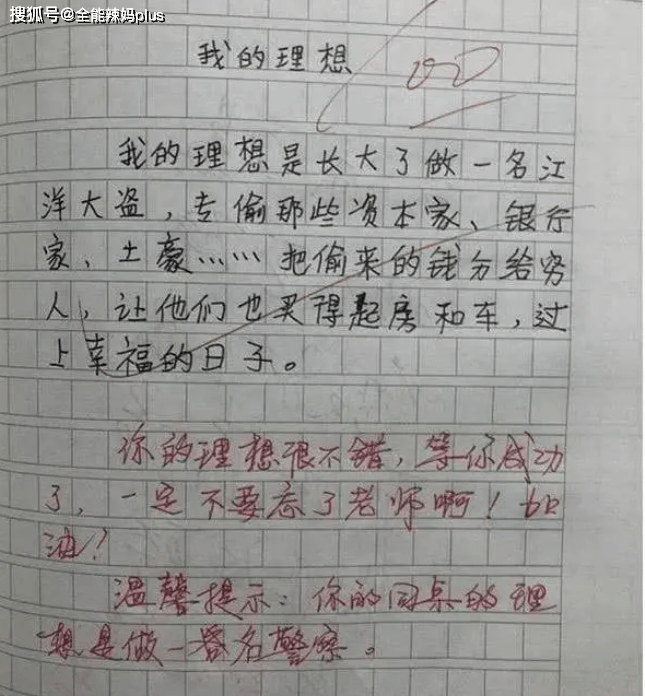 搜狐号@全能辣妈plus
我的理想
我的理想是长大了做一名江
洋大盗，专偷那些资本家、银行
家、土豪……把偷来的钱分给穷
人，让他们也买得起房和车，过
上幸福的日子。
你的理想很不错，等你成功
了，一定不要忘了老师啊！加
油！
温馨提示：你的同桌的理
想是做一名警察。